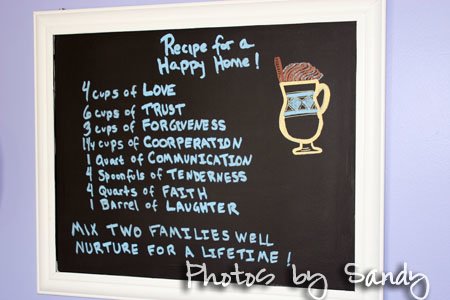 Recipe for a
Happy Home!
4 cups of LOVE
6 cups of TRUST
3 cups of FORGIVENESS
1¼ cups of COOPERATION
1 Quart of COMMUNICATION
4 Spoonfuls of TENDERNESS
4 Quarts of FAITH
1 Barrel of LAUGHTER
MIX TWO FAMILIES WELL
NURTURE FOR A LIFETIME!
Photos by Sandy